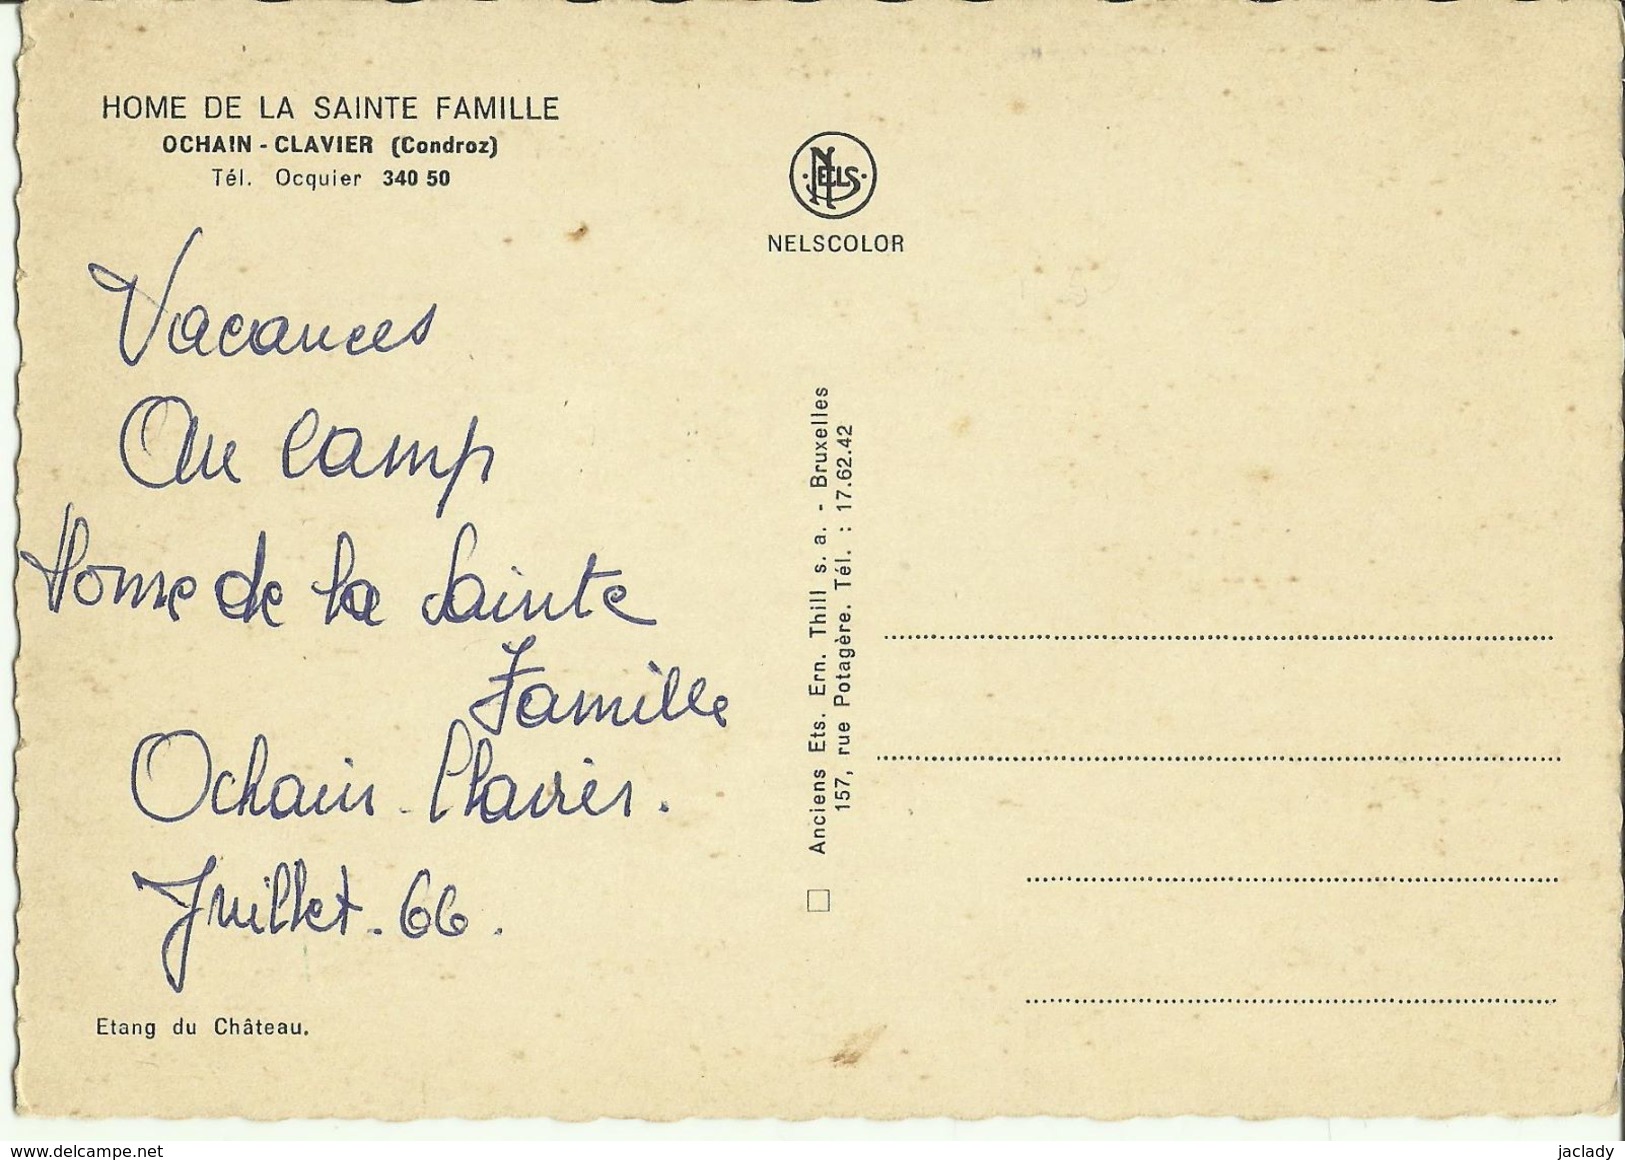 HOME DE LA SAINTE FAMILLE
OCHAIN - CLAVIER (Condroz)
Tél. Ocquier 340 50
NELS
NELSCOLOR
Vacances
Au camp
Home de la Sainte
Famille
Ochain - Clavier.
Juillet. 66.
Etang du Château.
Anciens Ets. Ern. Thill s. a. - Bruxelles
157, rue Potagère. Tél. : 17.62.42
www.delcampe.net
jaclady